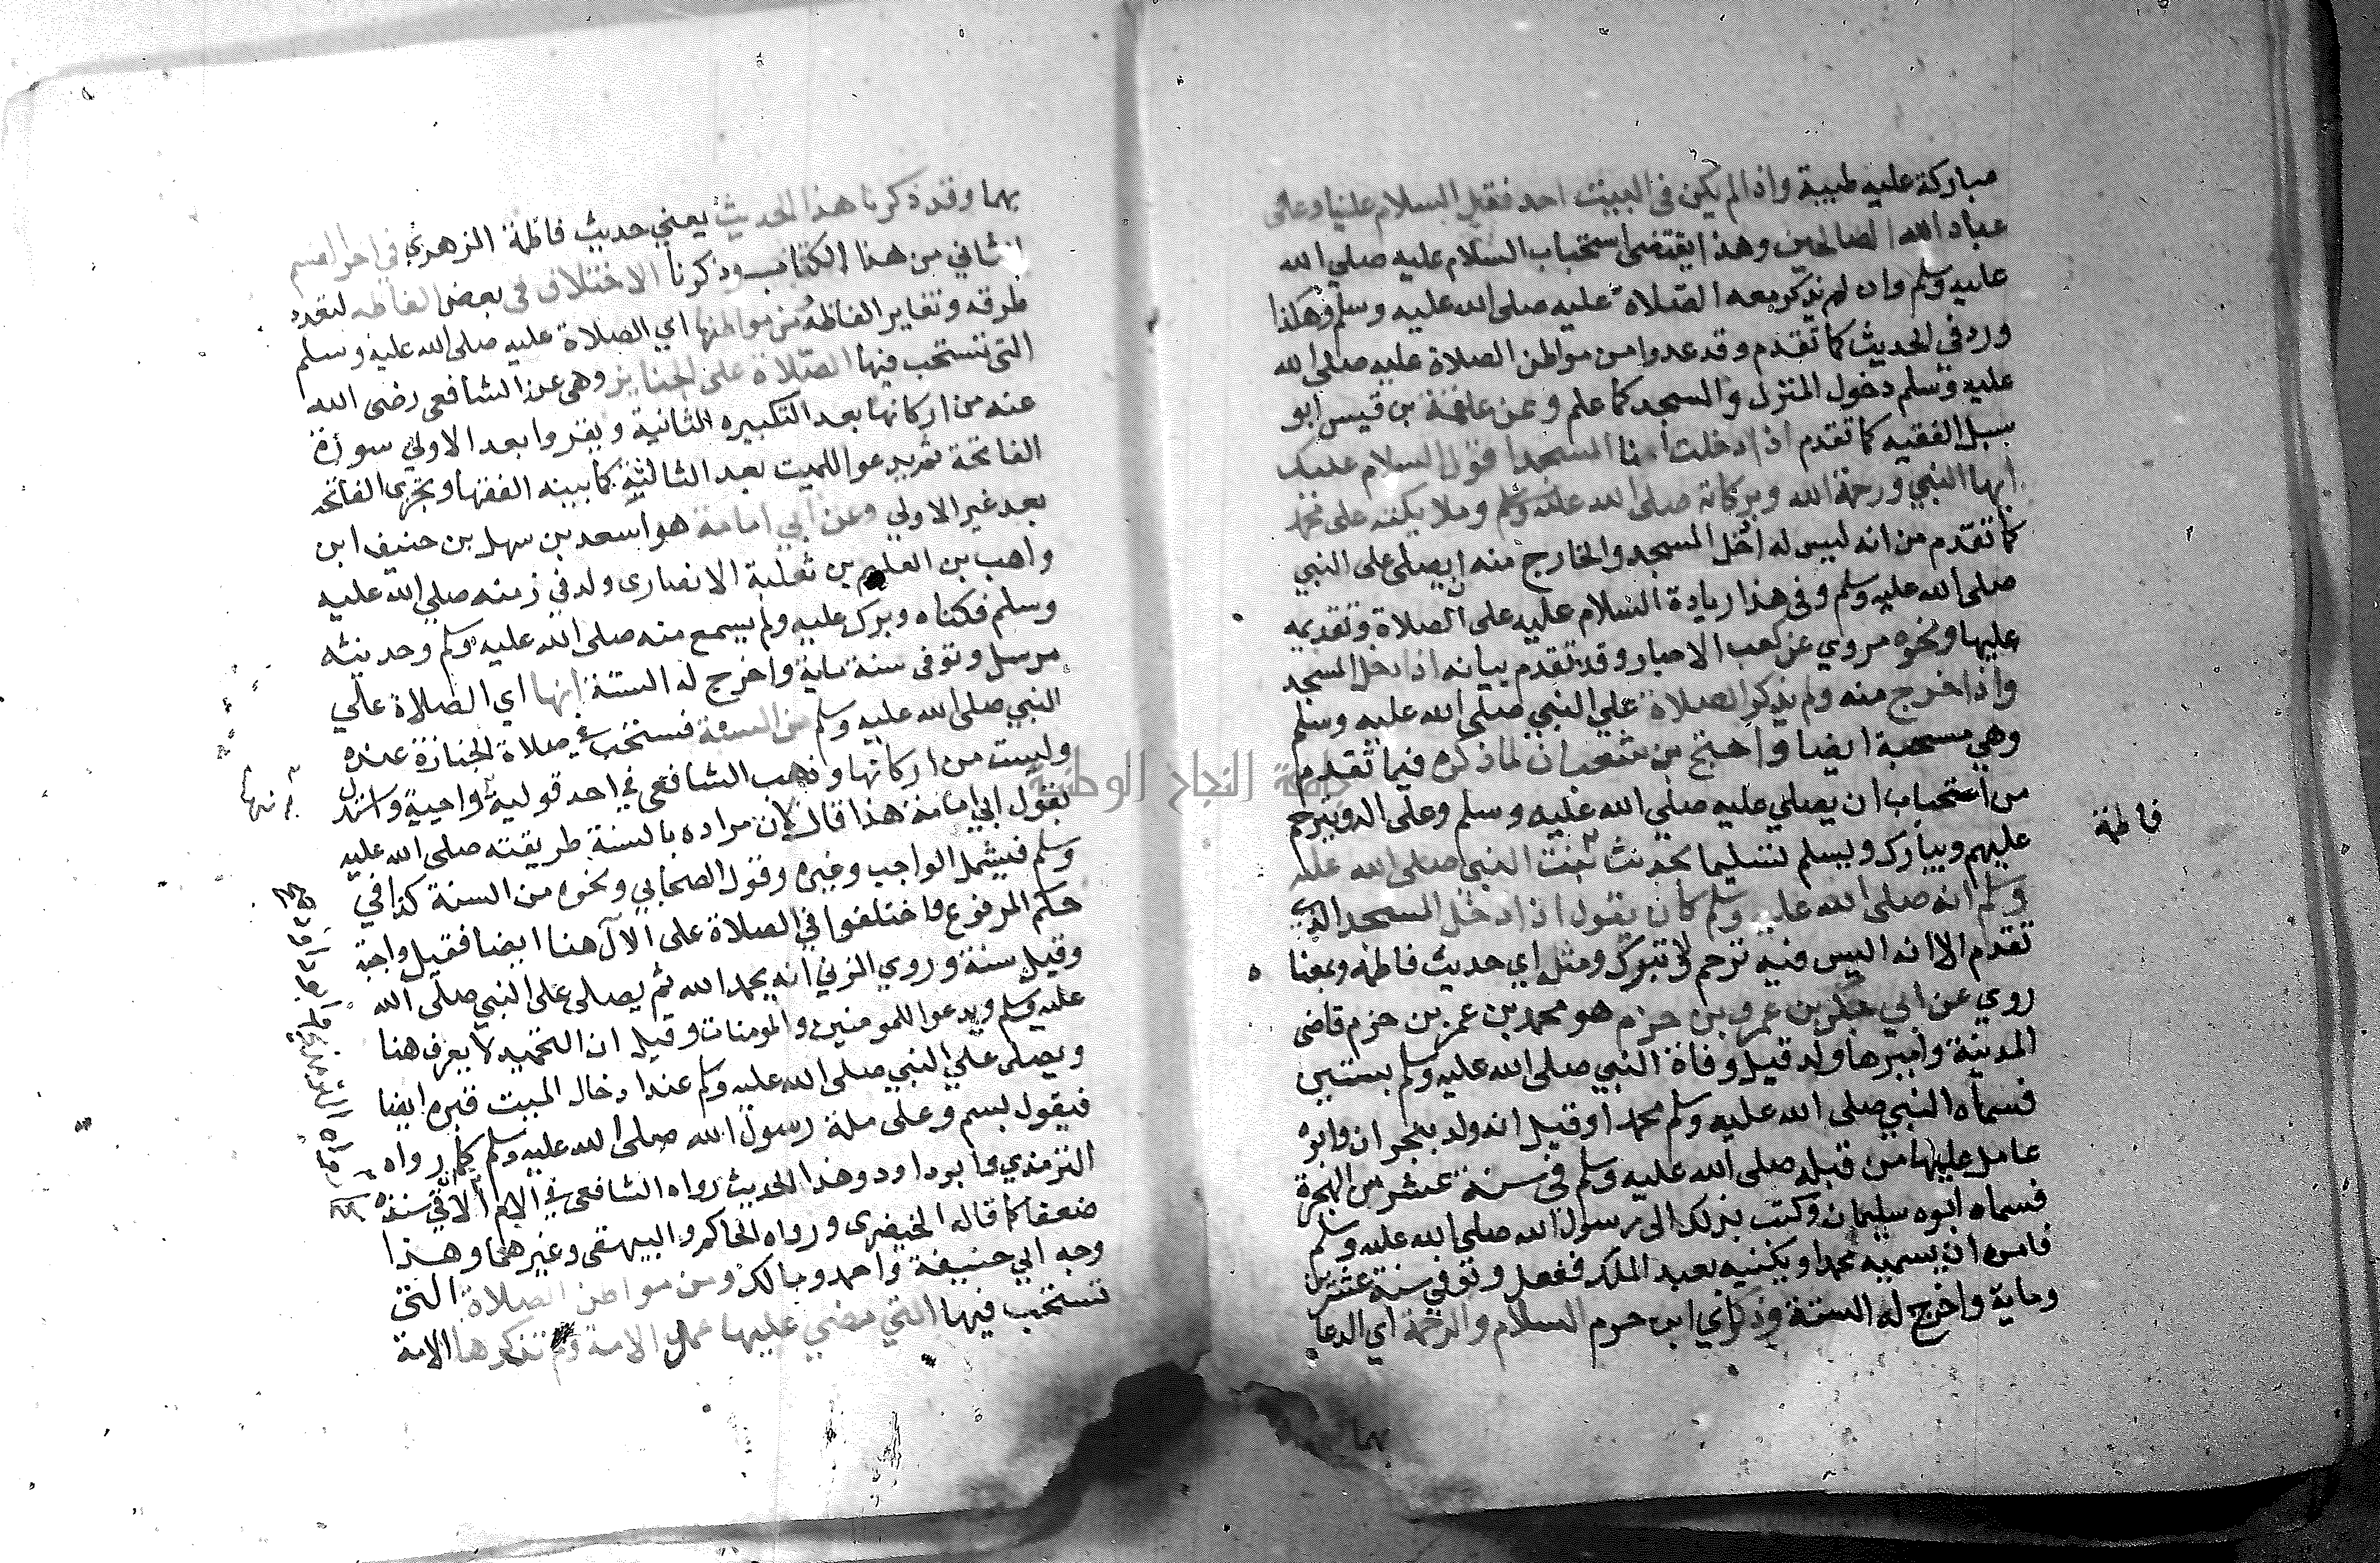 مباركة عليه طيبة واذا لم يكن في البيت احد فقيل السلام علينا وعلى
عباد الله الصالحين وهذا يقتضى استحباب السلام عليه صلي الله
عليه وسلم وان لم يذكر معه الصلاة عليه صلى الله عليه وسلم وهكذا
ورد في الحديث كما تقدم وقد عدوا من مواطن الصلاة عليه صلى الله
عليه وسلم دخول المنزل والمسجد كما علم وعن علقمة بن قيس ابو
سبل الفقيه كما تقدم اذا دخلت انا المسجد اقول السلام عليك
ايها النبي ورحمة الله وبركاته صلى الله عليه وسلم وملايكته على محمد
كما تقدم من انه ليس له اخل المسجد والخارج منه ان يصلى على النبي
صلى الله عليه وسلم وفى هذا زيادة السلام عليه على الصلاة وتقديمه
عليها ونحوه مروي عن كعب الاحبار وقد تقدم بيانه اذا دخل المسجد
واذا خرج منه ولم يذكر الصلاة علي النبي صلى الله عليه وسلم
وهي مستحبة ايضا واحتج بن شعبان لما ذكره فيما تقدم
من استحباب ان يصلي عليه صلى الله عليه وسلم وعلى اله ويترحم
عليهم ويبارك ويسلم تسليما بحديث بنت النبي صلى الله عليه
فاطمة
وسلم انه صلى الله عليه وسلم كان يقول اذا دخل المسجد الذي
تقدم الا انه اليس فيه ترحم ولا تبرك ومثله اي حديث فاطمة وبمعنا
روي عن ابي بكر بن عمرو بن حزم هو محمد بن عمر بن حزم قاضى
المدينة واميرها ولد قبل وفاة النبي صلى الله عليه وسلم بسنتين
فسماه النبي صلى الله عليه وسلم محمدا وقيل انه ولد بنجران وابوه
عامل عليها من قبله صلى الله عليه وسلم فى سنة عشر من الهجرة
فسماه ابوه سليمان وكتب بذلك الى رسول الله صلى الله عليه وسلم
فامره ان يسميه محمدا ويكنيه بعبد الملك ففعل وتوفي سنة عشر
وماية واخرج له الستة وذكر اي ابن حزم السلام والرحمة اي الدعا
بهما
بهما وقد ذكرنا هذا الحديث يعني حديث فاطمة الزهري في اخر القسم
الثاني من هذا الكتاب وذكرنا الاختلاف في بعض الفاظه لتعدد
طرقه وتغاير الفاظه ومن مواطنها اي الصلاة عليه صلى الله عليه وسلم
التى تستحب فيها الصلاة على الجنايز وهى عند الشافعى رضى الله
عنه من اركانها بعد التكبيره الثانية ويقروا بعد الاولي سورة
الفاتحة ثم يدعو الللميت بعد الثالثة كما بينه الفقها وتجزى الفاتحه
بعد غير الاولي وعن ابي امامة هو اسعد بن سهل بن حنيف ابن
واهب بن العليم بن ثعلبة الانصارى ولد في زمنه صلي الله عليه
وسلم فكناه وبرك عليه ولم يسمع منه صلى الله عليه وسلم وحديثه
مرسل وتوفى سنة ماية واخرج له الستة انها اي الصلاة علي
النبي صلى الله عليه وسلم من السنة فستحب في صلاة الجنازة عنده
وليست من اركانها وذهب الشافعى في احد قوليه واجبة واستدل
انها
بقول ابي امامة هذا قال لان مراده بالسنة طريقته صلى الله عليه
وسلم فيشمل الواجب وغيره وقول الصحابي ونحوه من السنة كذا في
حكم المرفوع واختلفوا في الصلاة على الآل هنا ايضا فقيل واجبة
وقيل سنة وروي المزني انه يحمد الله ثم يصلى على النبي صلى الله
عليه وسلم ويدعو اللمومنين والمومنات وقيل ان التحميد لا يعرف هنا
ويصلى علي النبي صلى الله عليه وسلم عند ادخال الميت قبره ايضا
فيقول بسم وعلى ملة رسول الله صلى الله عليه وسلم كما رواه
الترمذي وابو داود وهذا الحديث رواه الشافعى في الام الا في سنده
ضعفا كما قاله الخيضرى ورواه الحاكم والبيهقى وغيرهما وهذا
وجه ابي حنيفة واحمد ومالك ومن مواطن الصلاة التى
تستحب فيها التي مضى عليها عمل الامة ولم تنكرها الامة